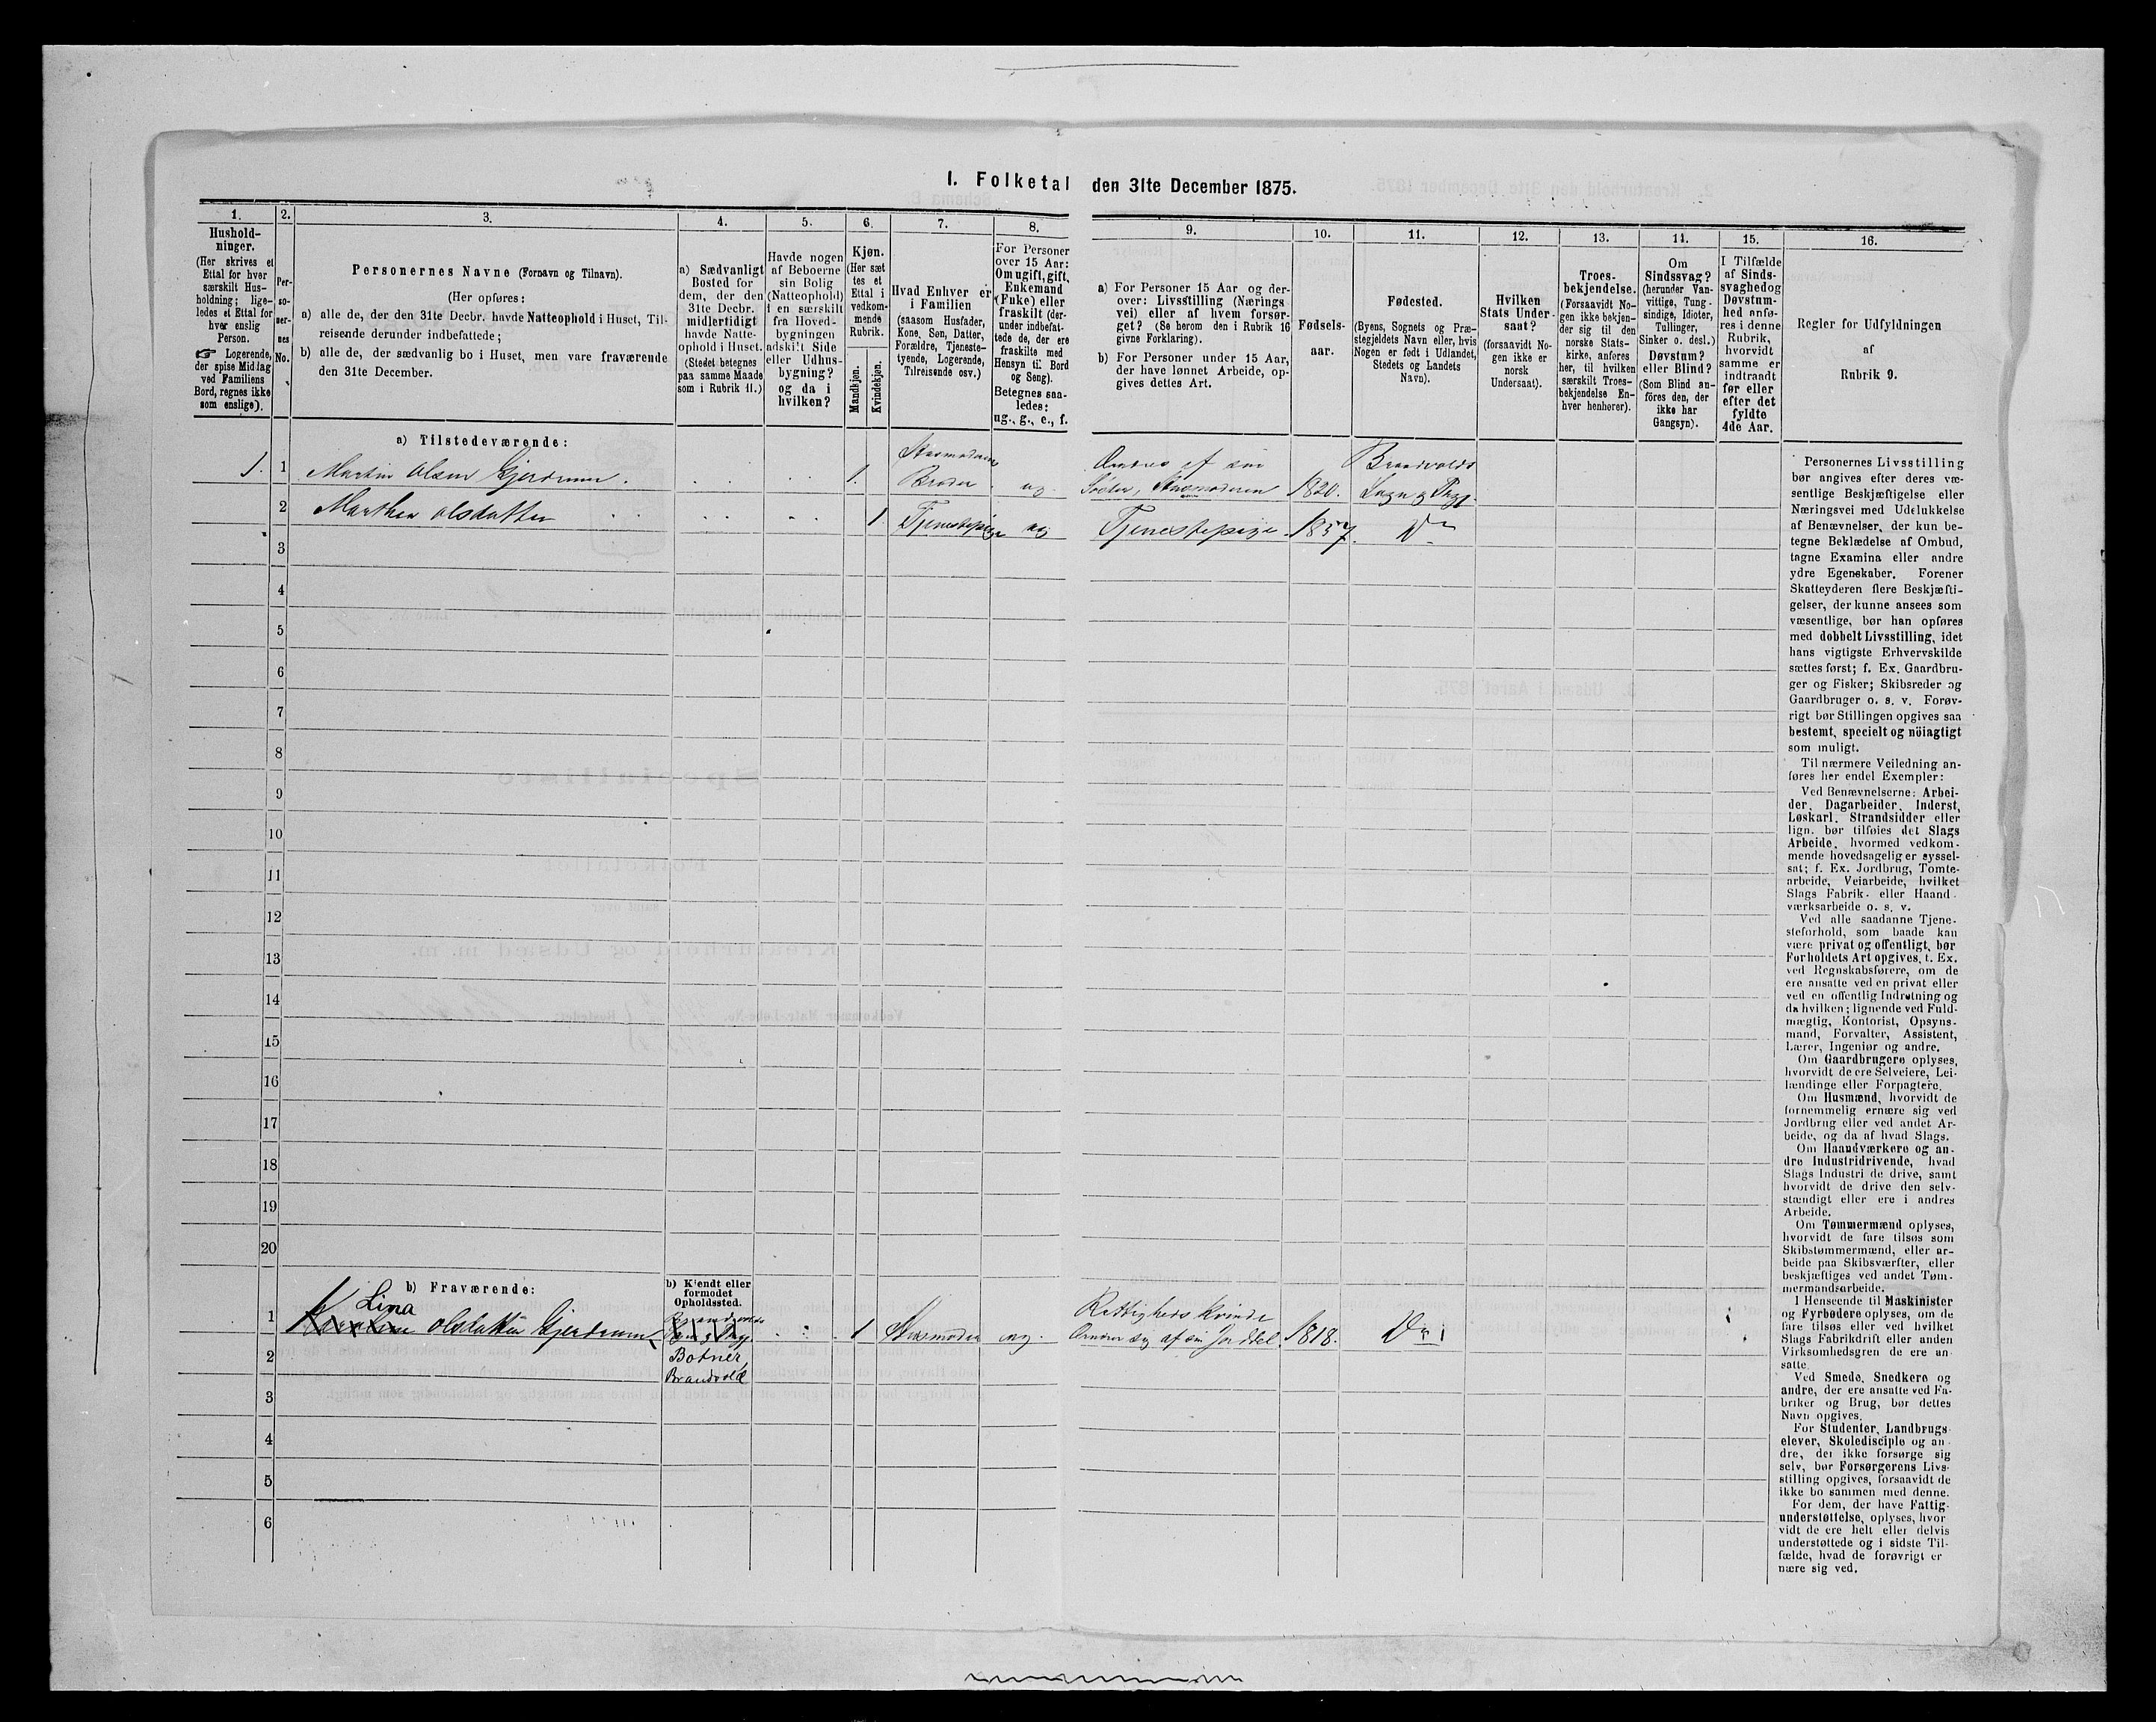 I. Folketal den 31te December 1875.
1.
Hushold-
ninger.
(Her skrives et
Ettal for hver
særskilt Hus-
holdning; lige-
ledes et Ettal for
hver enslig
Person.
☞ Logerende,
der spise Middag
ved Familiens
Bord, regnes ikke
som enslige).
2.
Per-
so-
ner-
nes
No.
3.
Personernes Navne (Fornavn og Tilnavn).
(Her opføres:
a) alle de, der den 31te Decbr. havde Natteophold i Huset, Til-
reisende derunder indbefattede;
b) alle de, der sædvanlig bo i Huset, men vare fraværende
den 31te December.
4.
a) Sædvanligt
Bosted for
dem, der den
31te Decbr.
midlertidigt
havde Natte-
ophold i Huset.
(Stedet betegnes
paa samme Maade
som i Rubrik 11.)
5.
Havde nogen
af Beboerne
sin Bolig
(Natteophold)
i en særskilt
fra Hoved-
bygningen
adskilt Side
eller Udhus-
bygning?
og da i
hvilken?
6.
Kjøn.
(Her sæt
tes et
Ettal i
vedkom-
mende
Rubrik.
Mandkjøn.
Kvindekjøn.
7.
Hvad Enhver er
i Familien
(saasom Husfader,
Kone, Søn, Datter,
Forældre, Tjeneste-
tyende, Logerende,
Tilreisende osv.)
8.
For Personer
over 15 Aar:
Om ugift, gift,
Enkemand
(Enke) eller
fraskilt (der-
under indbefat-
tede de, der ere
fraskilte med
Hensyn til Bord
og Seng).
Betegnes saa-
ledes:
ug., g., e., f.
9.
a) For Personer 15 Aar og der-
over: Livsstilling (Nærings
vei) eller af hvem forsør-
get? (Se herom den i Rubrik 16
givne Forklaring).
b) For Personer under 15 Aar,
der have lønnet Arbeide, op-
gives dettes Art.
10.
Fødsels-
aar.
11.
Fødested.
(Byens, Sognets og Præ-
stegjeldets Navn eller, hvis
Nogen er født i Udlandet,
Stedets og Landets
Navn).
12.
Hvilken
Stats Under-
saat?
(forsaavidt No-
gen ikke er
norsk
Undersaat).
13.
Troes-
bekjendelse.
(Forsaavidt No-
gen ikke bekjen-
der sig til den
norske Stats-
kirke, anføres
her, til hvilken
særskilt Troes-
bekjendelse En-
hver henhører).
14.
Om
Sindssvag?
(herunder Van-
vittige, Tung-
sindige, Idioter,
Tullinger,
Sinker o. desl.)
Døvstum?
eller Blind?
(Som Blind an-
føres den, der
ikke har
Gangsyn).
15.
I Tilfælde
af Sinds-
svaghed og
Døvstum-
hed anfø-
res i denne
Rubrik,
hvorvidt
samme er
indtraadt
før eller
efter det
fyldte
4de Aar.
16.
Regler for Udfyldningen
af
Rubrik 9.
a) Tilstedeværende:
1. 1 Martin Olsen Gjerdrum. 1. Husmoderens Broder ug Ernæres af sin Søster, Husmoderen 1820. Brandvolds Sogn og Prgj.
2 Marthea Olsdatter 1 Tjenestepige ug Tjenestepige 1857. Do
3
4
5
6
7
8
9
10
11
12
13
14
15
16
17
18
19
20
b) Fraværende:
b) Kjendt eller
formodet
Opholdssted.
1 Lina Olsdatter Gjerdrum 1 Husmoder ug. Rettigheds Kvinde 1818. Do
Botner,
Brandvold
2
3
4
5
6
Personernes Livsstilling
bør angives efter deres væ-
sentlige Beskjæftigelse eller
Næringsvei med Udelukkelse
af Benævnelser, der kun be-
tegne Beklædelse af Ombud,
tagne Examina eller andre
ydre Egenskaber. Forener
Skatteyderen flere Beskjæfti-
gelser, der kunne ansees som
væsentlige, bør han opføres
med dobbelt Livsstilling, idet
hans vigtigste Erhvervskilde
sættes først; f. Ex. Gaardbru-
ger og Fisker; Skibsreder og
Gaardbruger o. s. v. Forøv-
rigt bør Stillingen opgives saa
bestemt, specielt og nöiagtigt
som muligt.
Til nærmere Veiledning an-
føres her endel Exempler:
Ved Benævnelserne: Arbei-
der, Dagarbeider, Inderst,
Løskarl, Strandsidder eller
lign. bør tilføies det Slags
Arbeide, hvormed vedkom-
mende hovedsagelig er syssel-
sat; f. Ex. Jordbrug, Tomte-
arbeide, Veiarbeide, hvilket
Slags Fabrik- eller Haand-
værksarbeide o. s. v.
Ved alle saadanne Tjene-
steforhold, som baade kan
være privat og offentligt, bør
Forholdets Art opgives, f. Ex.
ved Regnskabsførere, om de
ere ansatte ved en privat eller
ved en offentlig Indretning og
da hvilken; lignende ved Fuld-
mægtig, Kontorist, Opsyns-
mand, Forvalter, Assistent,
Lærer, Ingeniør og andre.
Om Gaardbrugere oplyses,
hvorvidt de ere Selveiere, Lei-
lændinge eller Forpagtere.
Om Husmænd, hvorvidt de
fornemmelig ernære sig ved
Jordbrug eller ved andet Ar-
beide, og da af hvad Slags.
Om Haandværkere og an-
dre Industridrivende, hvad
Slags Industri de drive, samt
hvorvidt de drive den selv-
stændigt eller ere i andres
Arbeide.
Om Tømmermænd oplyses,
hvorvidt de fare tilsøs som
Skibstømmermænd, eller ar-
beide paa Skibsværfter, eller
beskjæftiges ved andet Tøm-
mermandsarbeide.
I Henseende til Maskinister
og Fyrbødere oplyses, om de
fare tilsøs eller ved hvilket
Slags Fabrikdrift eller anden
Virksomhedsgren de ere an-
satte.
Ved Smede, Snedkere og
andre, der ere ansatte ved Fa-
briker og Brug, bør dettes
Navn opgives.
For Studenter, Landbrugs-
elever, Skoledisciple og an-
dre, der ikke forsørge sig
selv, bør Forsørgerens Livs-
stilling opgives, forsaavidt de
ikke bo sammen med denne.
For dem, der have Fattig-
understøttelse, oplyses, hvor
vidt de ere helt eller delvis
understøttede og i sidste Til-
fælde, hvad de forøvrigt er
nære sig ved.